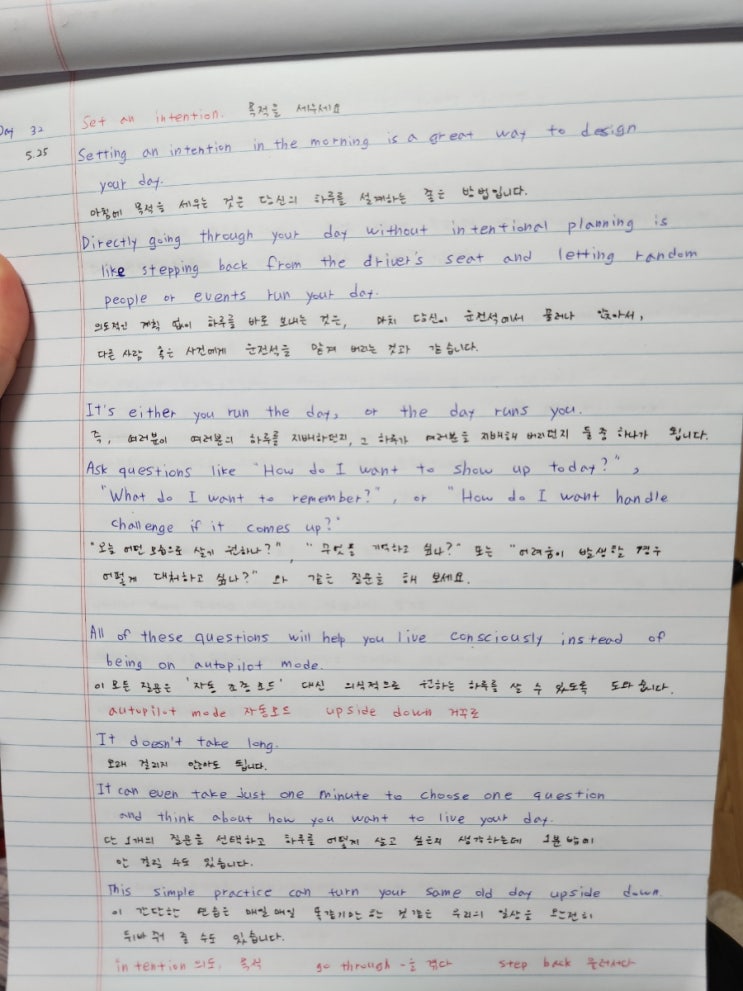 Day 32 Set an intention. 목적을 세우세요
5.25 Setting an intention in the morning is a great way to design
your day.
아침에 목적을 세우는 것은 당신의 하루를 설계하는 좋은 방법입니다.
Directly going through your day without intentional planning is
like stepping back from the driver's seat and letting random
people or events run your day.
의도적인 계획 없이 하루를 바로 보내는 것은, 마치 당신이 운전석에서 물러나 앉아서,
다른 사람 혹은 사건에게 운전석을 맡겨 버리는 것과 같습니다.
It's either you run the day, or the day runs you.
즉, 여러분이 여러분의 하루를 지배하던지, 그 하루가 여러분을 지배해 버리던지 둘 중 하나가 됩니다.
Ask questions like "How do I want to show up today?",
"What do I want to remember?", or "How do I want handle
challenge if it comes up?"
"오늘 어떤 모습으로 살기 원하나?", "무엇을 기억하고 싶나?" 또는 "어려움이 발생할 경우
어떻게 대처하고 싶나?" 와 같은 질문을 해 보세요.
All of these questions will help you live consciously instead of
being on autopilot mode.
이 모든 질문은 '자동 조종 모드' 대신 의식적으로 원하는 하루를 살 수 있도록 도와 줍니다.
autopilot mode 자동모드 upside down 거꾸로
It doesn't take long.
오래 걸리지 않아도 됩니다.
It can even take just one minute to choose one question
and think about how you want to live your day.
단 1개의 질문을 선택하고 하루를 어떻게 살고 싶은지 생각하는데 1분 밖에
안 걸릴 수도 있습니다.
This simple practice can turn your same old day upside down.
이 간단한 연습은 매일 매일 똑같기만 한 것 같은 우리의 일상을 완전히
뒤바꿔 줄 수도 있습니다.
intention 의도, 목적 go through -을 겪다 step back 물러서다